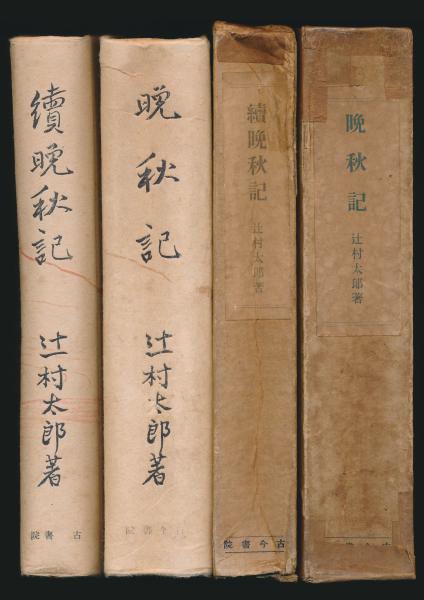 續晩秋記
辻村太郎著
古 書院
晩秋記
辻村太郎著
古今書院
續晩秋記
辻村太郎著
古今書院
晩秋記
辻村太郎著
古今書院